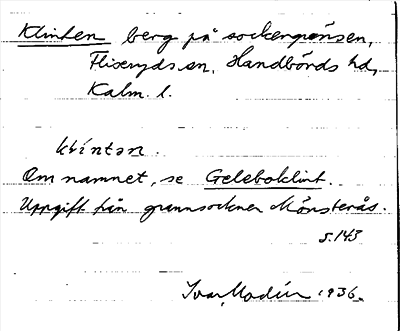 Klinten berg på sockengränsen,
Fliseryds sn, Handbörds hd,
Kalm. l.
klintən.
Om namnet, se Geleboklint.
Uppgift från grannsocknen Mönsterås.
s. 143
Ivar Modéer 1936.